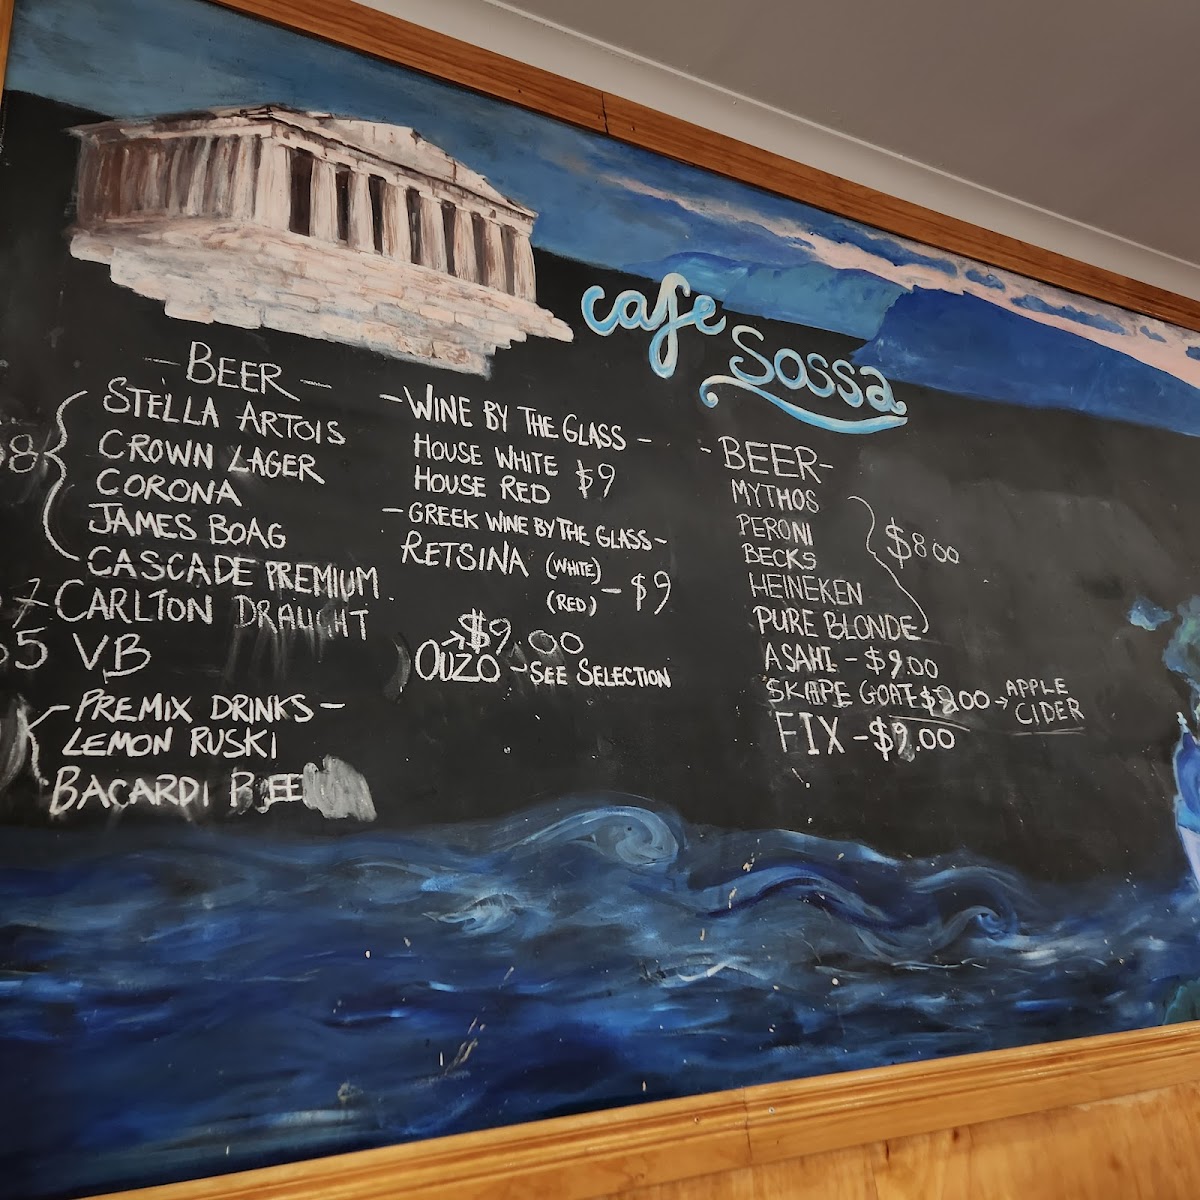 cafe
Sossa
- BEER -
8 { STELLA ARTOIS
CROWN LAGER
CORONA
JAMES BOAG
CASCADE PREMIUM
7 - CARLTON DRAUGHT
5 VB
- PREMIX DRINKS -
LEMON RUSKI
BACARDI
- WINE BY THE GLASS -
HOUSE WHITE $9
HOUSE RED
- GREEK WINE BY THE GLASS -
RETSINA (WHITE) - $9
(RED)
→ $9.00
OUZO - SEE SELECTION
- BEER -
MYTHOS
PERONI
BECKS } $8.00
HEINEKEN
PURE BLONDE
ASAHI - $9.00
GOAT → APPLE
CIDER
FIX - $9.00